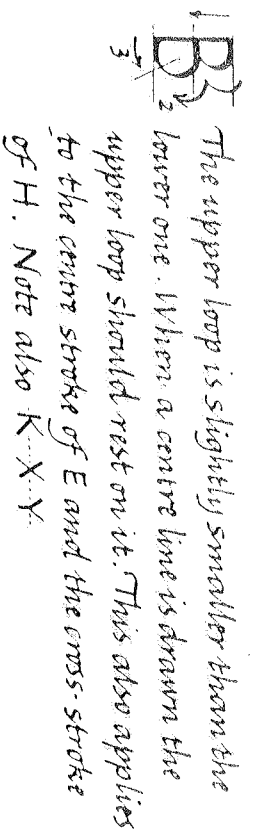 1 B 2 3
The upper loop is slightly smaller than the
lower one. When a centre line is drawn the
upper loop should rest on it. This also applies
to the centre stroke of E and the cross-stroke
of H. Note also K X Y